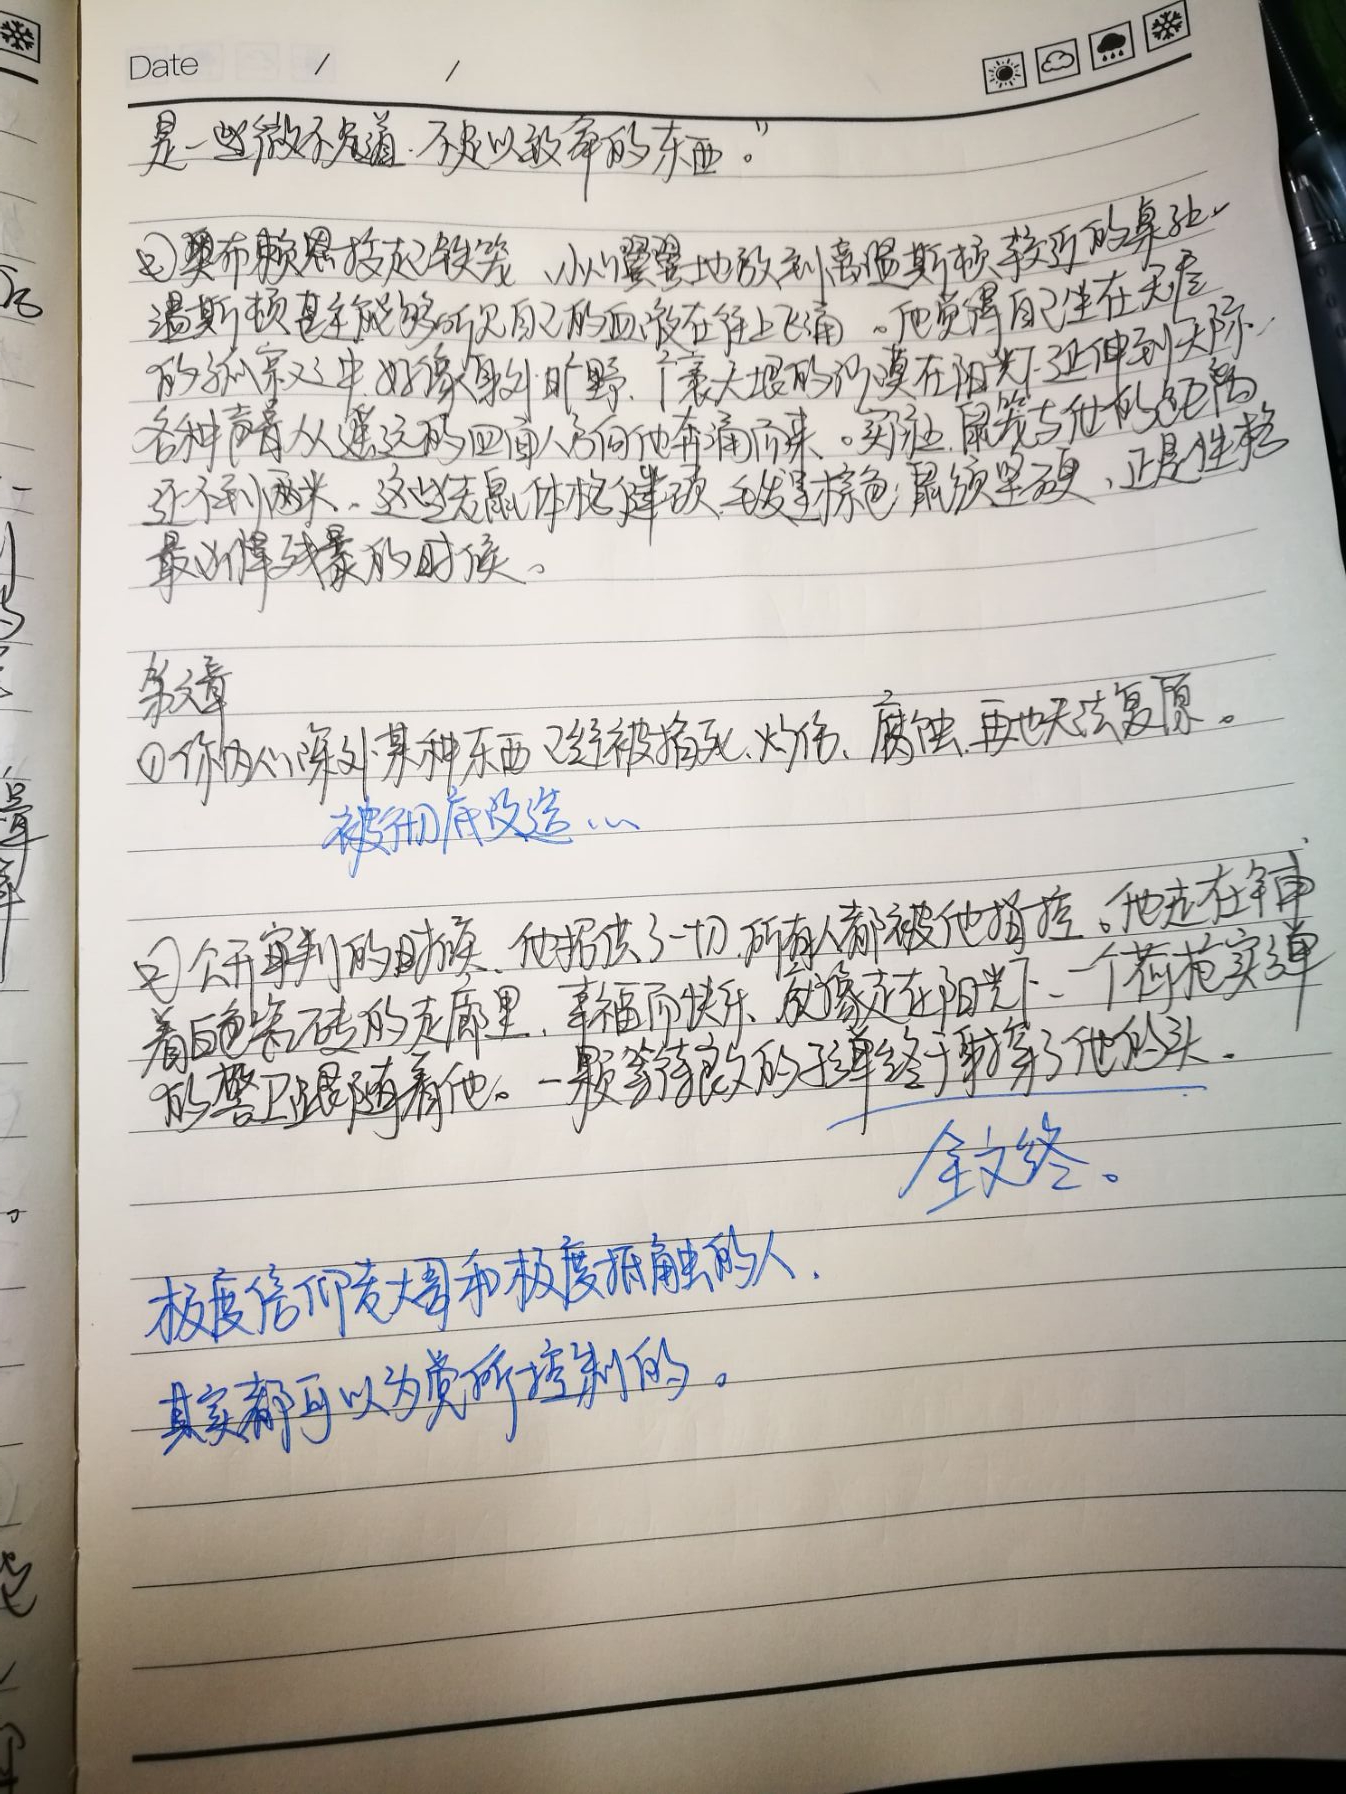 Date / /
是一些微不足道、不足以致命的东西。”
②奥布赖恩拎起铁笼、小心翼翼地放到离温斯顿较近的桌张、
温斯顿甚至能够听见自己的血液在往上飞涌。他觉得自己坐在无尽
的孤寂之中,好像身处旷野,广袤大垠的沙漠在阳光下延伸到天际、
各种声音从遥远的四面八方向他奔涌而来。实际上,鼠笼与他的距离
还不到两米。这些老鼠体格健硕,毛发呈棕色,鼠须坚硬、正是性格
最凶悍残暴的时候。
条文章
①你内心深处某种东西已经被掐死、灼伤、腐蚀,再也无法复原。
被彻底改造...
②公开审判的时候、他招供了一切,所有人都被他指控。他走在铺
着白色瓷砖的走廊里,幸福而快乐、就像走在阳光下、一个荷枪实弹
的警卫跟随着他。一颗等待良久的子弹终于射穿了他的头。
全文终。
极度信仰老大哥和极度抵触的人,
其实都可以为党所控制的。